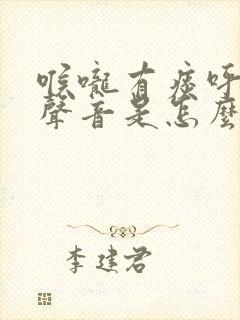 喉嚨有痰呼
聲音是怎麼
李建君